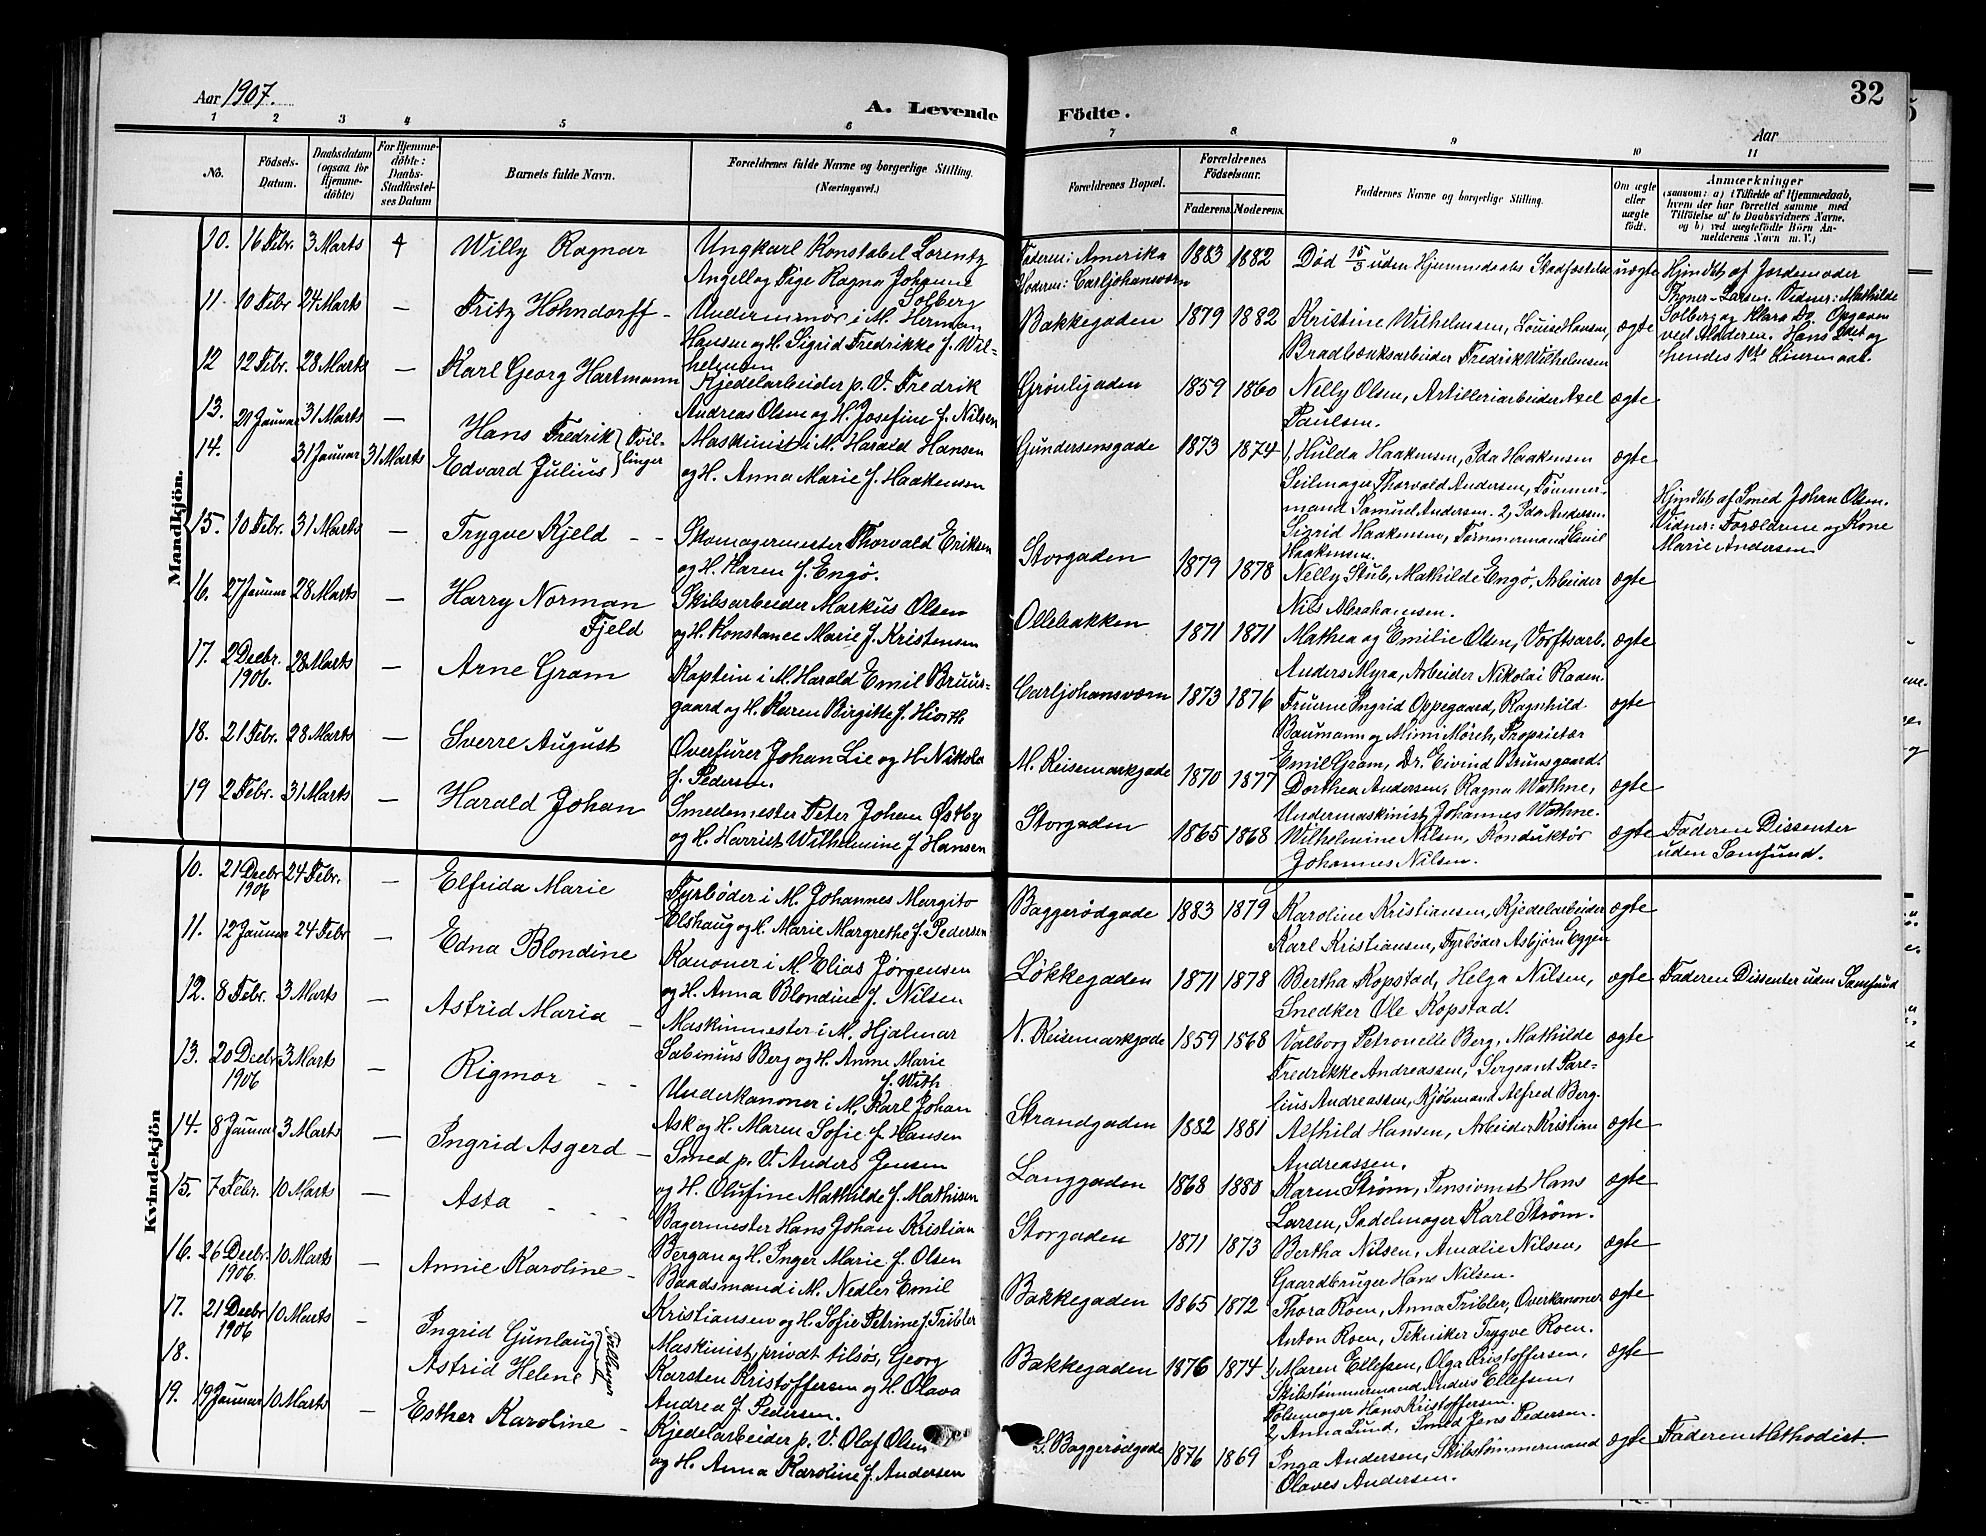 Aar 1907.
A. Levende
1 2 3 4 5 6
No.
Födsels-
Datum.
Daabsdatum
(ogsaa for
Hjemme-
döbte)
For Hjemme-
döbte:
Daabs-
Stadfæstel-
ses Datum
Barnets fulde Navn.
Forældrenes fulde Navne og borgerlige Stilling.
(Næringsvei.)
Mandkjön.
10. 16 Febr. 3 Marts Willy Ragnar Ungkarl Konstabel Lorentz
Angell og Pige Ragna Johanne
Solberg
11. 10 Febr 24 Marts — Fritz Höhndorff – Underminør i M. Herman
Hansen og H. Sigrid Fredrikke f. Wil-
helmsen
12 12 Febr. 28 Marts — Karl Georg Hartmann Kjedelarbeider p. V. Fredrik
Andreas Olsen og H. Josefine f. Nilsen
13. 21 Januar 31 Marts — Hans Fredrik Tvil- Maskinist i M. Harald Hansen
14. 31 Januar 31 Marts Edvard Julius linger og H. Anna Marie f. Haakensen
15. 10 Febr. 31 Marts — Trygve Kjeld – – Skomagermester Thorvald Eriksen
og H. Karen f. Engø.
16. 27 Januar 28 Marts — Harry Norman Skibsarbeider Markus Olsen
Fjeld og H. Konstance Marie f. Kristensen
17. 2 Decbr. 28 Marts — Arne Gram Kaptein i M. Harald Emil Bruus-
1906. gaard og H. Karen Birgitte f. Hiorth
18. 21 Febr. 28 Marts — Sverre August Overfurer Johan Lie og H. Nikola
f. Pedersen.
19 2 Febr. 31 Marts — Harald Johan Smedemester Peter Johan Østby
og H. Harriet Wilhelmine f Hansen
Kvindekjön
10. 21 Decbr 24 Febr. — Elfrida Marie Fyrbøder i M. Johannes Margito
1906 Elshaug og H. Marie Margrethe f. Pedersen
11. 12 Januar 24 Febr — Edna Blondine Kanoner i M. Elias Jørgensen
og H. Anna Blondine f. Nilsen
12. 8 Febr. 3 Marts — Astrid Maria – Maskinmester i M. Hjalmar
Sabinius Berg og H. Anne Marie
f. With
13. 20 Decbr 3 Marts — Rigmor – – Underkanoner i M. Karl Johan
1906 Ask og H. Maren Sofie f. Hansen
14. 8 Januar 3 Marts — Ingrid Asgerd – Smed p. V. Anders Jensen
og H. Olufine Mathilde f. Mathisen
15. 7 Febr. 10 Marts — Asta – – – Bagermester Hans Johan Kristian
Bergan og H. Inger Marie f. Olsen
16. 26 Decbr. 10 Marts — Annie Karoline – Baadsmand i M. Nedler Emil
1906. Kristiansen og H. Sofie Petrine f. Tribler
17. 21 Decbr 10 Marts — Ingrid Gunlaug Maskinist, privat tilsøs, Georg
1906 Karsten Kristoffersen og H. Olava
18. Astrid Helene Andrea f. Pedersen.
19. 19 Januar 10 Marts — Esther Karoline – Kjedelarbeider p. V. Olaf Olsen
og H. Anna Karoline f. Andersen
32
Födte.
Aar
7 8 9 10 11
Forældrenes Bopæl.
Forældrenes
Födselsaar.
Faderens. Moderens.
Faddernes Navne og borgerlige Stilling.
Om ægte
eller
uægte
födt.
Anmærkninger
(saasom: a) i Tilfælde af Hjemmedaab,
hvem der har forrettet samme med
Tilföielse af to Daabsvidners Navne.
og b) ved uægtefödte Börn An-
melderens Navn m. V.)
Faderen: Amerika 1883 1882 Död 15/3 uden Hjemmedaabs Stadfæstelse uægte Hjmdbt af Jordemoder
Moderen: Carljohansværn Thoner-Larsen. Vidner: Mathilde
Solberg og Klara Do. Opgaven
ved Mdderen. Hans 2det og
hendes 1ste Leiermaal.
Bakkegaden 1879 1882 Kristine Wilhelmsen, Louise Hansen, ægte
Bradbænksarbeider Fredrik Wilhelmsen
Grönligaden 1859 1860 Nelly Olsen, Artilleriarbeider Axel ægte
Paulsen.
Gundersensgade 1873 1874 1, Hulda Haakensen, Ida Haakensen ægte
Seilmager Thorvald Andersen, Tømmer-
mand Samuel Andersen. 2, Ida Andersen
Sigrid Haakensen, Tømmermand Emil
Haakensen.
Hjmdbt af Smed Johan Olsen.
Vidner: Forældrene og Kone
Marie Andersen
Storgaden 1879 1878 Nelly Stub, Mathilde Engø, Arbeider ægte
Nils Abrahamsen.
Ollebakken 1871 1871 Mathea og Emilie Olsen, Værftsarb. ægte
Anders Myra, Arbeider Nikolai Raaen.
Carljohansværn 1873 1876 Fruerne Ingrid Oppegaard, Ragnhild ægte
Baumann og Mimi Mörch, Proprietær
Emil Gram, Dr. Eivind Bruusgaard.
M. Keisemarkgade 1870 1877 Dorthea Andersen, Ragna Wathne, ægte
Undermaskinist Johannes Wathne.
Storgaden 1865 1868 Wilhelmine Nilsen, Konduktör ægte Faderen Dissenter
Johannes Nilsen. uden Samfund.
Baggerödgade 1883 1879 Karoline Kristiansen, Kjedelarbeider ægte
Karl Kristiansen, Fyrbøder Asbjørn Eggen
Løkkegaden 1871 1878 Bertha Kopstad, Helga Nilsen, ægte Faderen Dissenter uden Samfund
Snedker Ole Kopstad.
N. Keisemarkgade 1859 1868 Valborg Petronelle Berg, Mathilde ægte
Fredrikke Andreassen, Sergeant Pare-
lius Andreassen, Kjøbmand Alfred Berg.
Strandgaden 1882 1881 Alfhild Hansen, Arbeider Kristian ægte
Andreassen.
Langgaden 1868 1880 Maren Strøm, Pensionist Hans ægte
Larsen, Sadelmager Karl Strøm.
Storgaden 1871 1873 Bertha Nilsen, Amalie Nilsen, ægte
Gaardbruger Hans Nilsen.
Bakkegaden 1865 1872 Thora Roen, Anna Tribler, Overkanoner ægte
Anton Roen, Tekniker Trygve Roen.
Bakkegaden 1876 1874 1, Maren Ellefsen, Olga Kristoffersen, ægte
Skibstømmermand Anders Ellefsen,
Polsemager Hans Kristoffersen.
2, Anna Lund, Smed Jens Pedersen.
S. Baggerödgade 1876 1869 Inga Andersen, Skibstømmermand ægte Faderen Methodist.
Olaves Andersen.